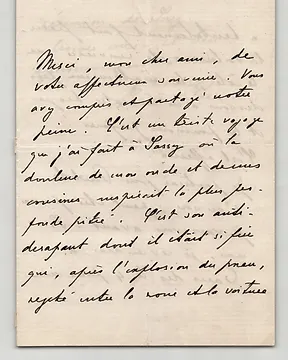 Merci, mon cher ami, de
votre affectueux souvenir. Vous
avez compris et partagé notre
peine. C'est un triste voyage
que j'ai fait à Sassy où la
douleur de mon oncle et de mes
cousines inspirait la plus pro-
fonde pitié. C'est son anti-
dérapant dont il était si fier
qui, après l'explosion du pneu,
rejeté entre la roue et la voiture